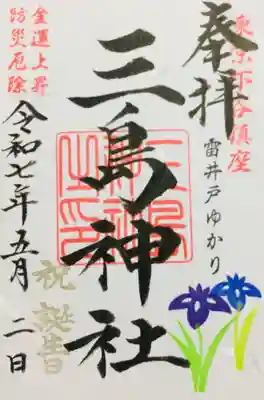 東京下谷鎮座
奉拝
雷井戸ゆかり
三島神社
三島神社之印
金運上昇
防災厄除
令和七年五月二日
祝誕生日